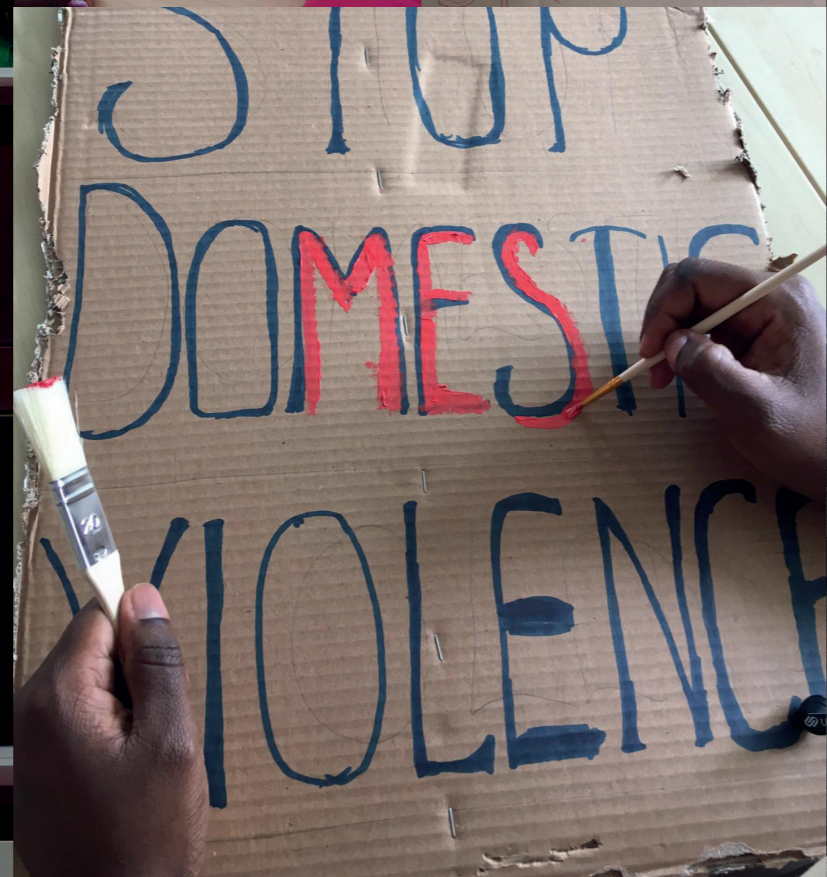 STOP
DOMESTIC
VIOLENCE